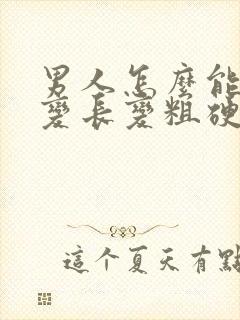 男人怎麼能
變長變粗硬
這个夏天有點